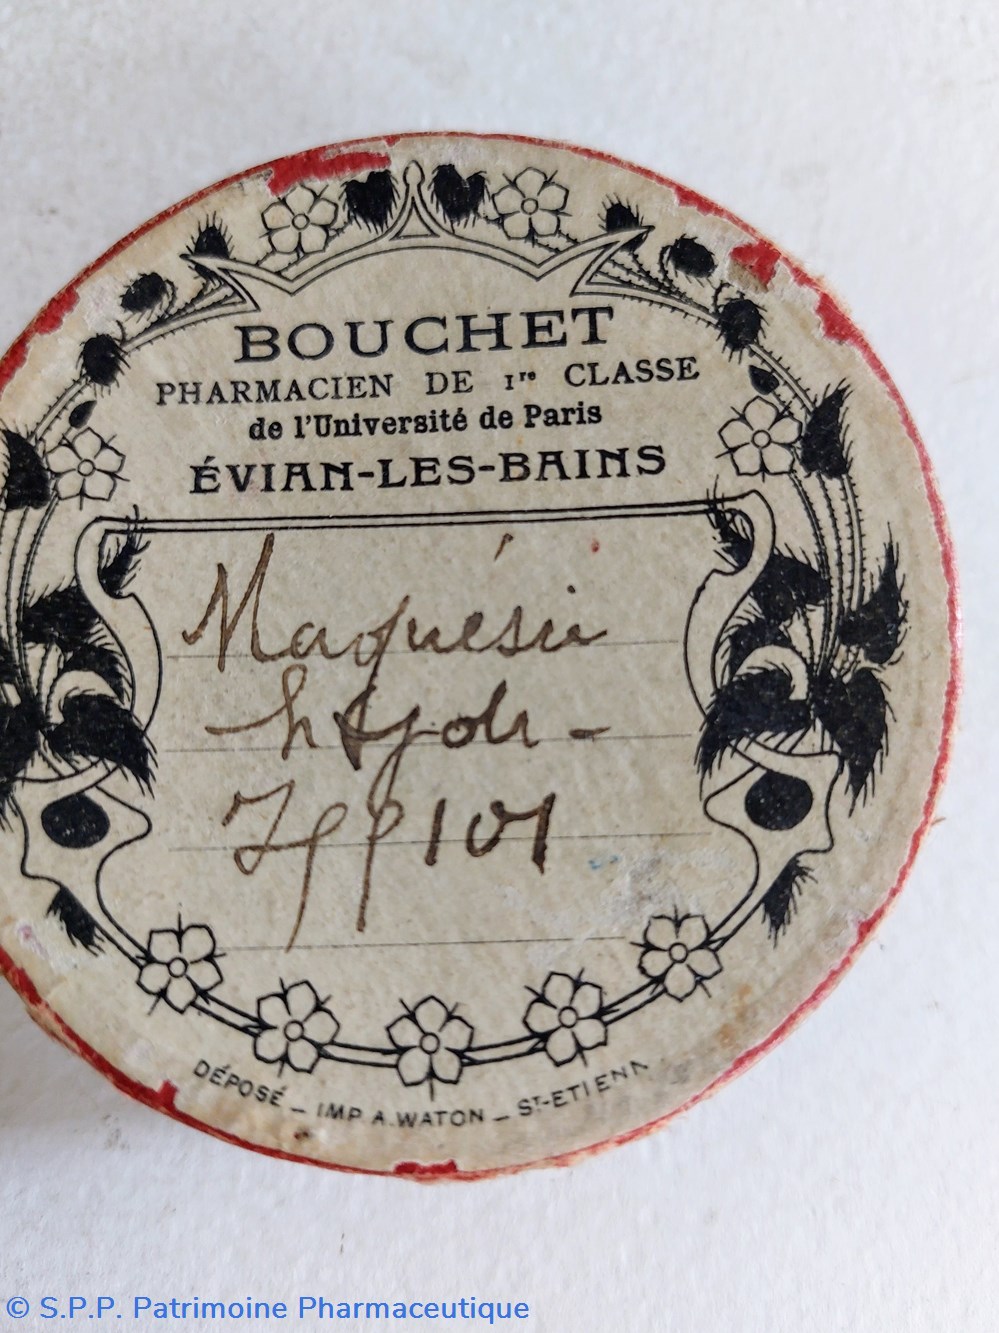 BOUCHET
PHARMACIEN DE 1re CLASSE
de l'Université de Paris
ÉVIAN-LES-BAINS
Magnésie
101
DÉPOSÉ – IMP. A. WATON – ST-ETIENN
© S.P.P. Patrimoine Pharmaceutique